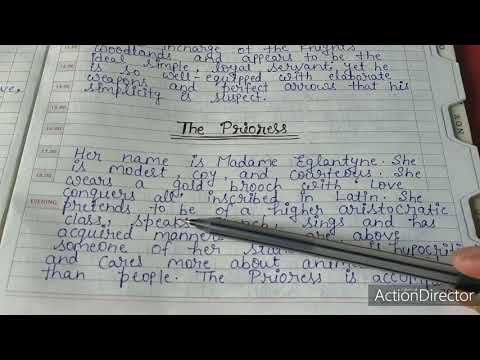 Woodlands incharge of the Knights
Ideal and appears to be the
is so simple, loyal servant. Yet he
weapons well-equipped with elaborate
simplicity and perfect arrows that his
is suspect.
14.00
15.00
16.00
The Prioress
17.00
Her name is Madame Eglantyne. She
is modest, coy and courteous. She
wears a gold brooch with 'Love
conquers all' inscribed in Latin. She
EVENING
pretends to be of a higher aristocratic
class, speaks sings and has
acquired manners above
someone of her hypocriti
and cares more about
than people. The Prioress is
ActionDirector